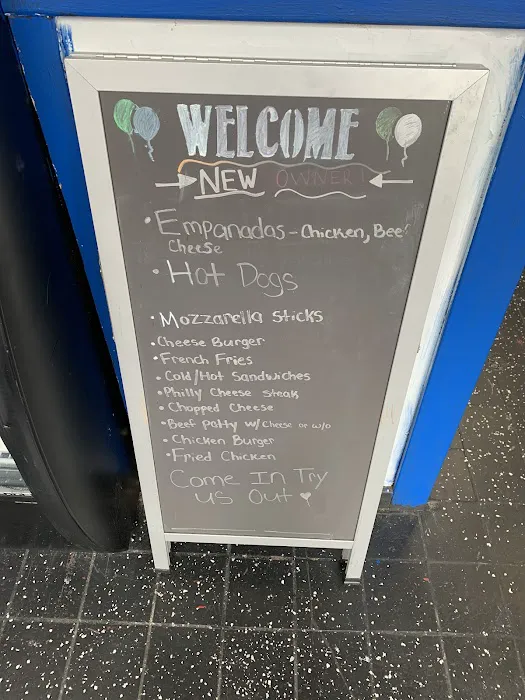 WELCOME
NEW OWNER!
• Empanadas - Chicken, Beef
Cheese
• Hot Dogs
• Mozzarella Sticks
• Cheese Burger
• French Fries
• Cold/Hot Sandwiches
• Philly Cheese Steak
• Chopped Cheese
• Beef Patty w/ Cheese or w/o
• Chicken Burger
• Fried Chicken
Come In Try
us Out